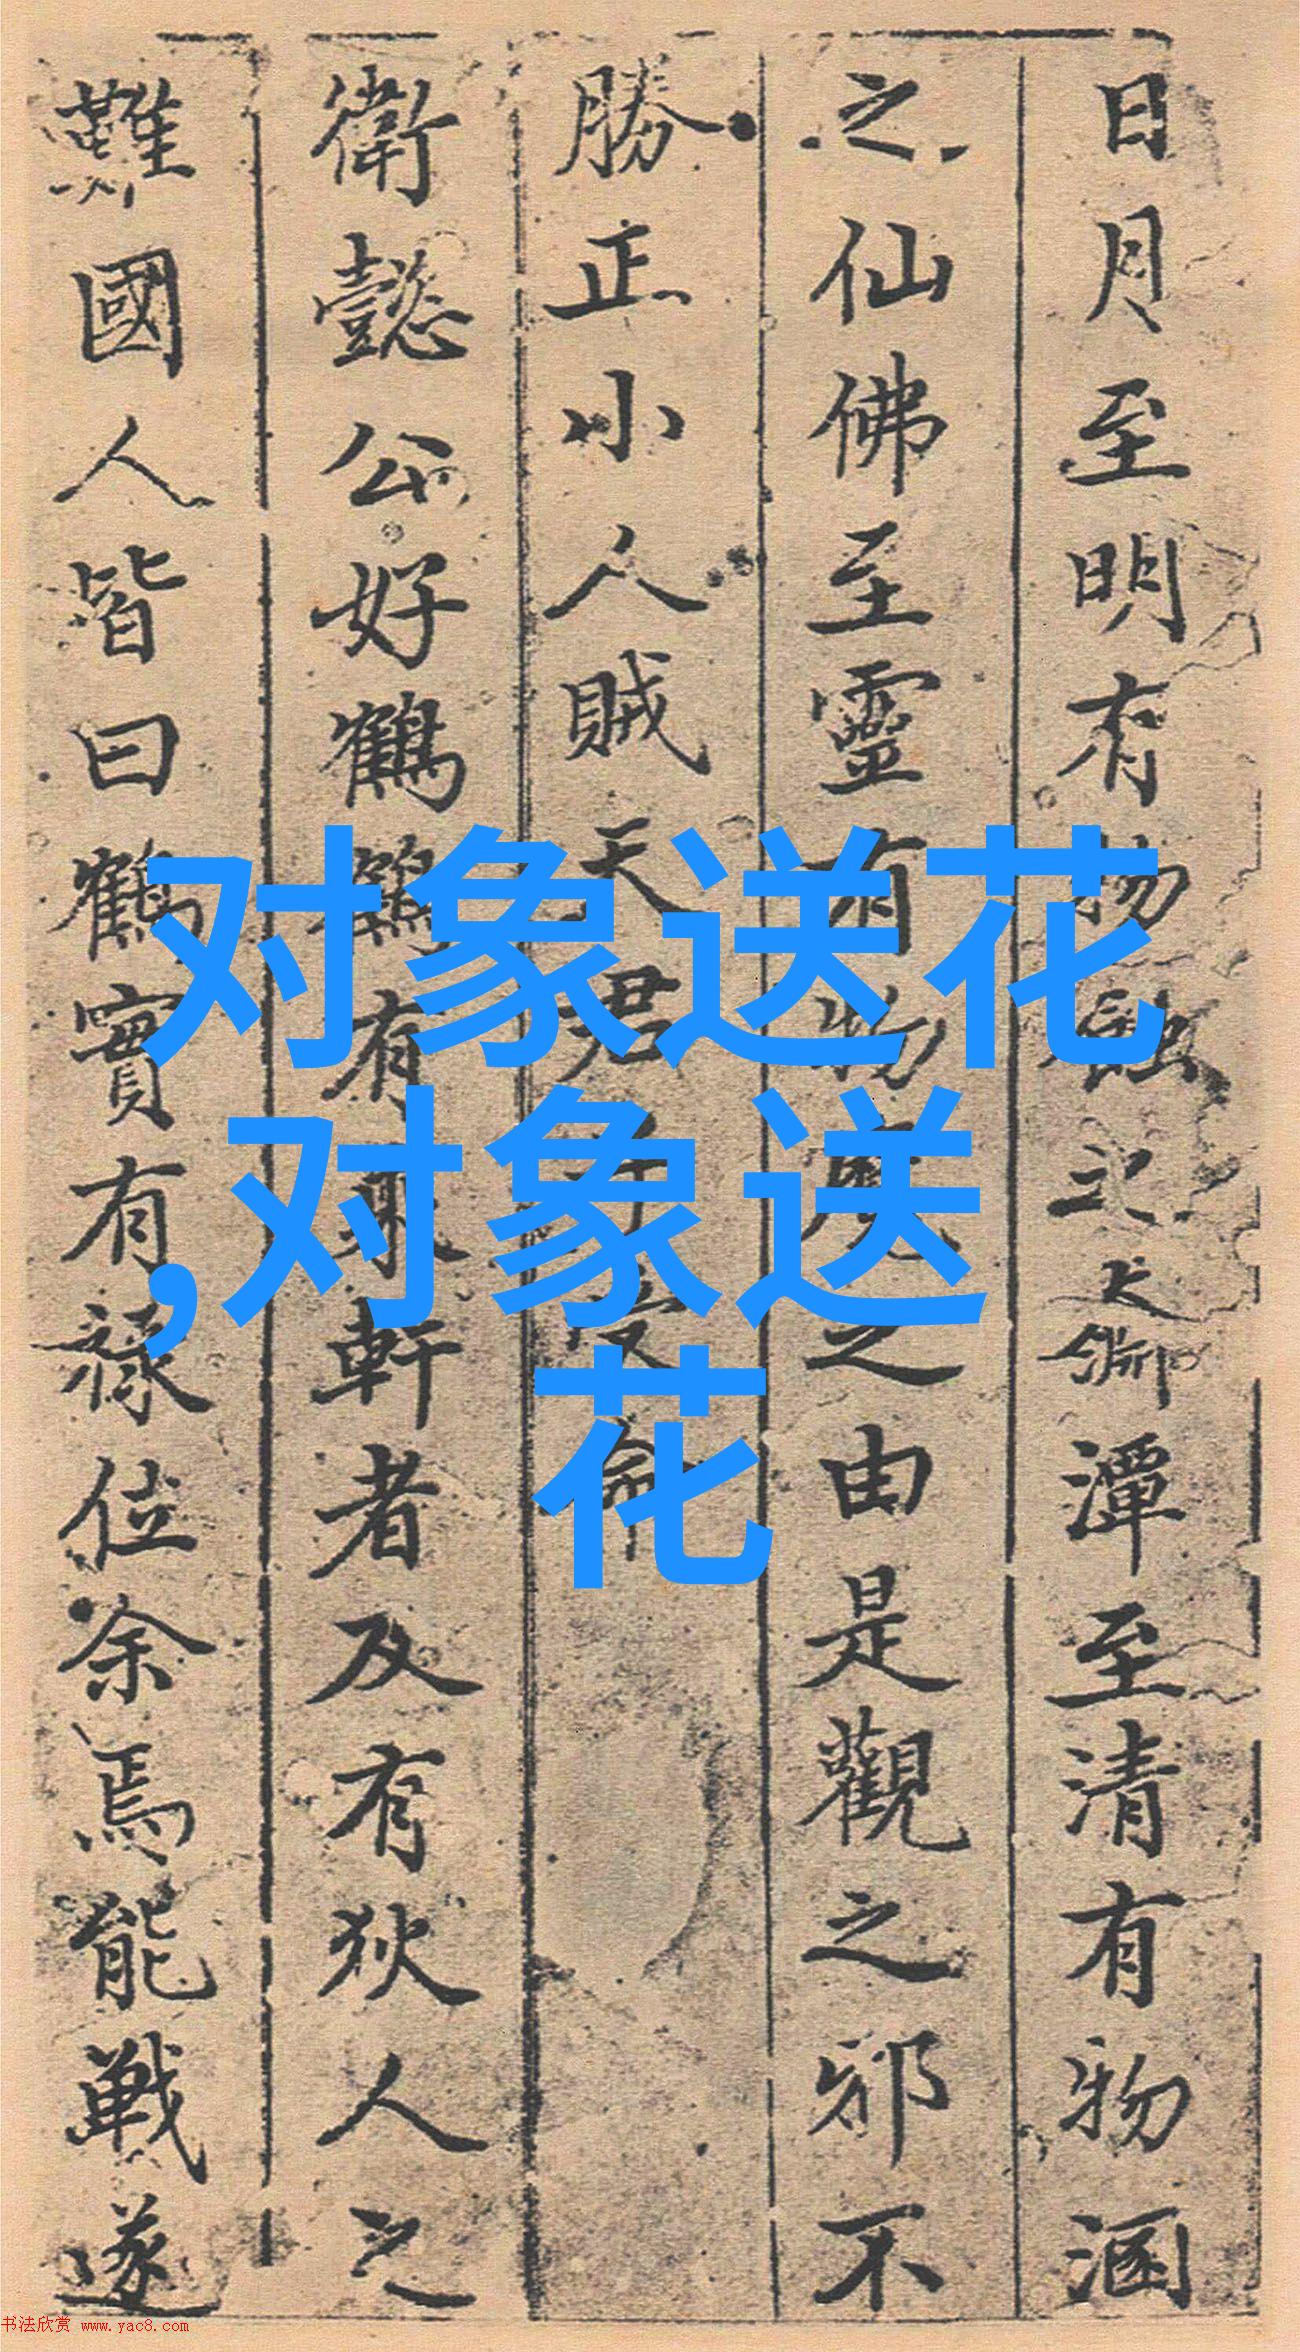 日月至明有物蝕之潭至清有物涵
之仙佛至靈有物之由是觀之邪不
勝正小人賊天君
衛懿公好鶴鶴有乘軒者及有狄人之
難國人皆曰鶴實有祿位余焉能戰遂
对象送花
,对象送
花
书法欣赏 www.yac8.com